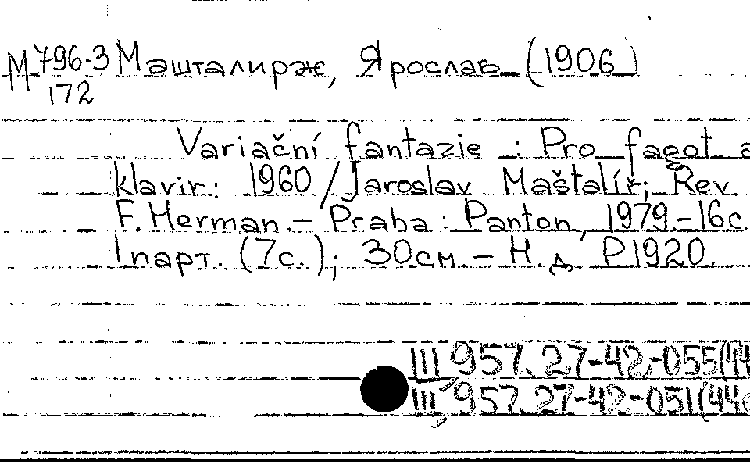 М796-3 Машталирж, Ярослав (1906)
172
Variační fantazie : Pro fagot a
klavír: 1960 / Jaroslav Maštalíř; Rev
F. Herman. – Praha : Panton, 1979.-16c.
1 парт. (7с.); 30см. – Н.д. P1920.
III 957.27-42-055(44
III 957.27-42-051(44